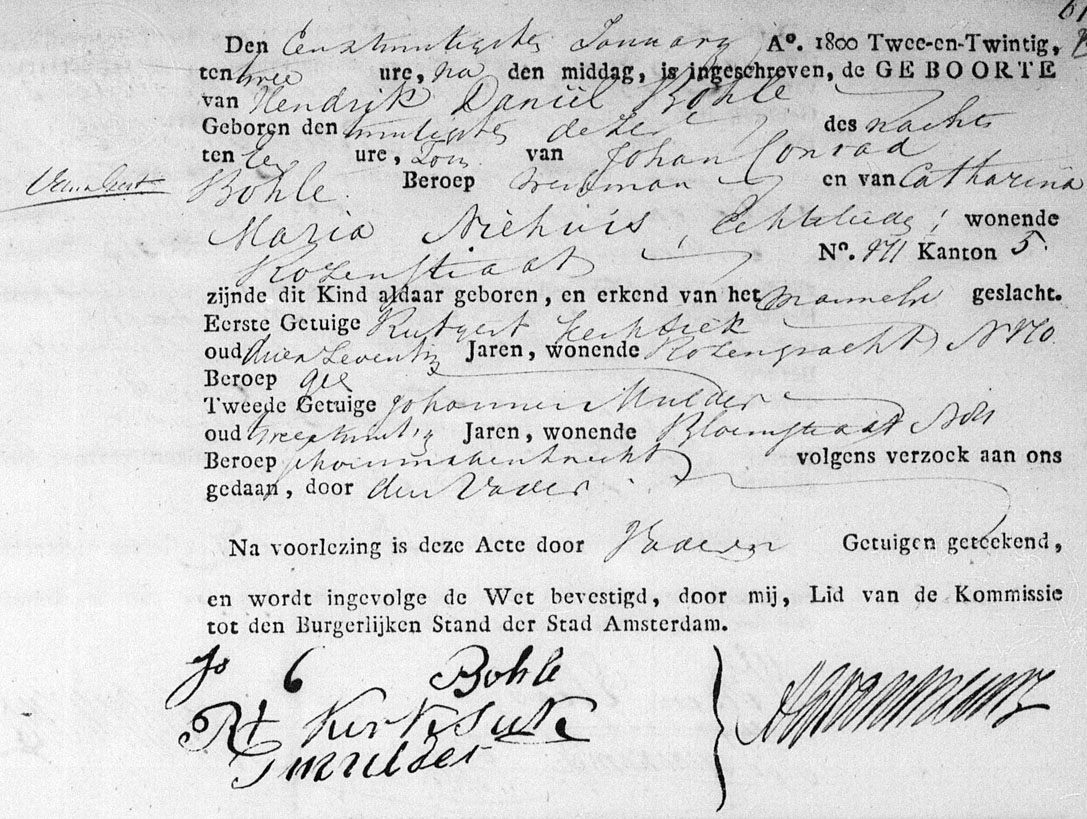 Den Eenentwintigste January Aº. 1800 Twee-en-Twintig,
ten twee ure, na den middag, is ingeschreven, de GEBOORTE
van Hendrik Daniël Bohle
Geboren den twintigste dezer des nachts
ten ure, Zoon van Johan Conrad
Bohle Beroep werkman en van Catharina
Maria Niehuis, Echtelieden, wonende
Rozenstraat Nº. Kanton 5.
zijnde dit Kind aldaar geboren, en erkend van het mannelijk geslacht.
Eerste Getuige Rutgert Kerkdiek
oud Jaren, wonende Rozengracht
Beroep geen
Tweede Getuige Johannes Mulder
oud Jaren, wonende Bloemstraat
Beroep schoenmakersknecht volgens verzoek aan ons
gedaan, door den Vader
Na voorlezing is deze Acte door Vader en Getuigen geteekend,
en wordt ingevolge de Wet bevestigd, door mij, Lid van de Kommissie
tot den Burgerlijken Stand der Stad Amsterdam.
Bohle
Mulder